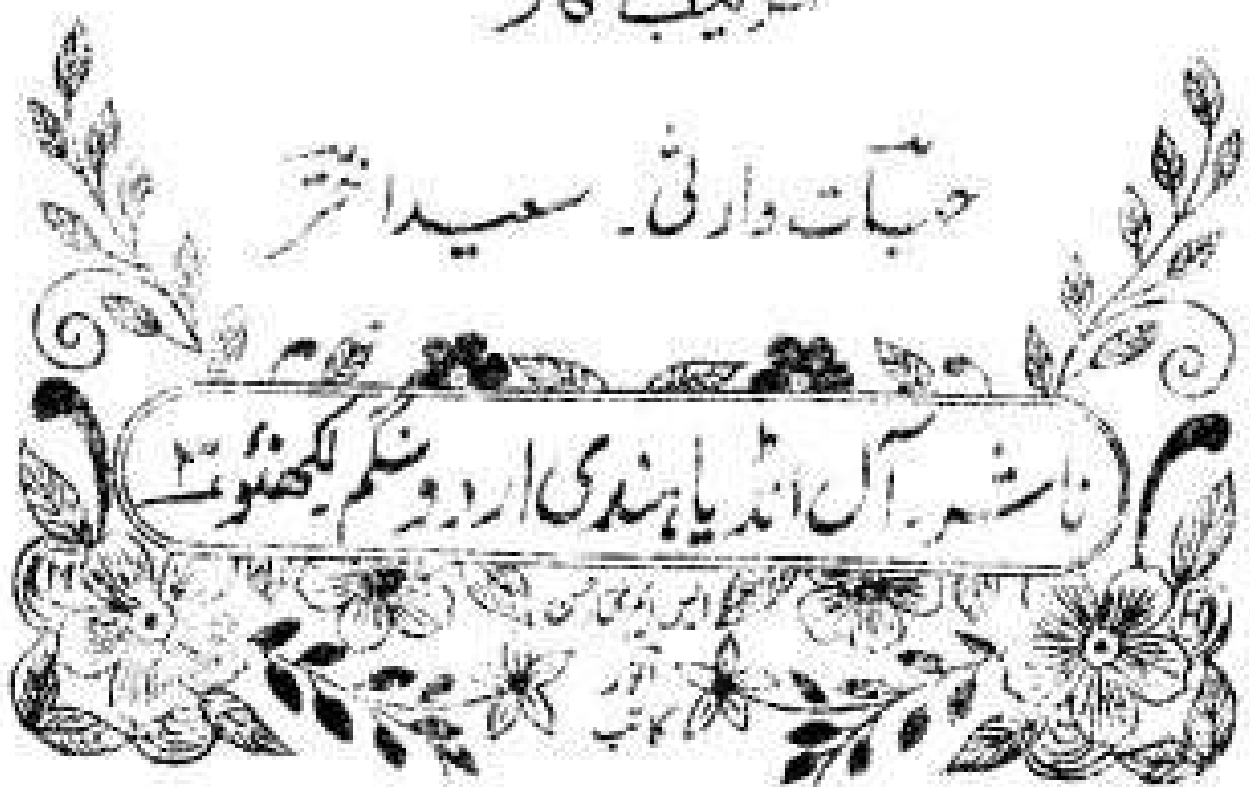 کار
حیات وارثی ۔ سعید اختر
ناشر ۔ آل انڈیا ہندی اردو سنگم لکھنؤ ۳
کاتب